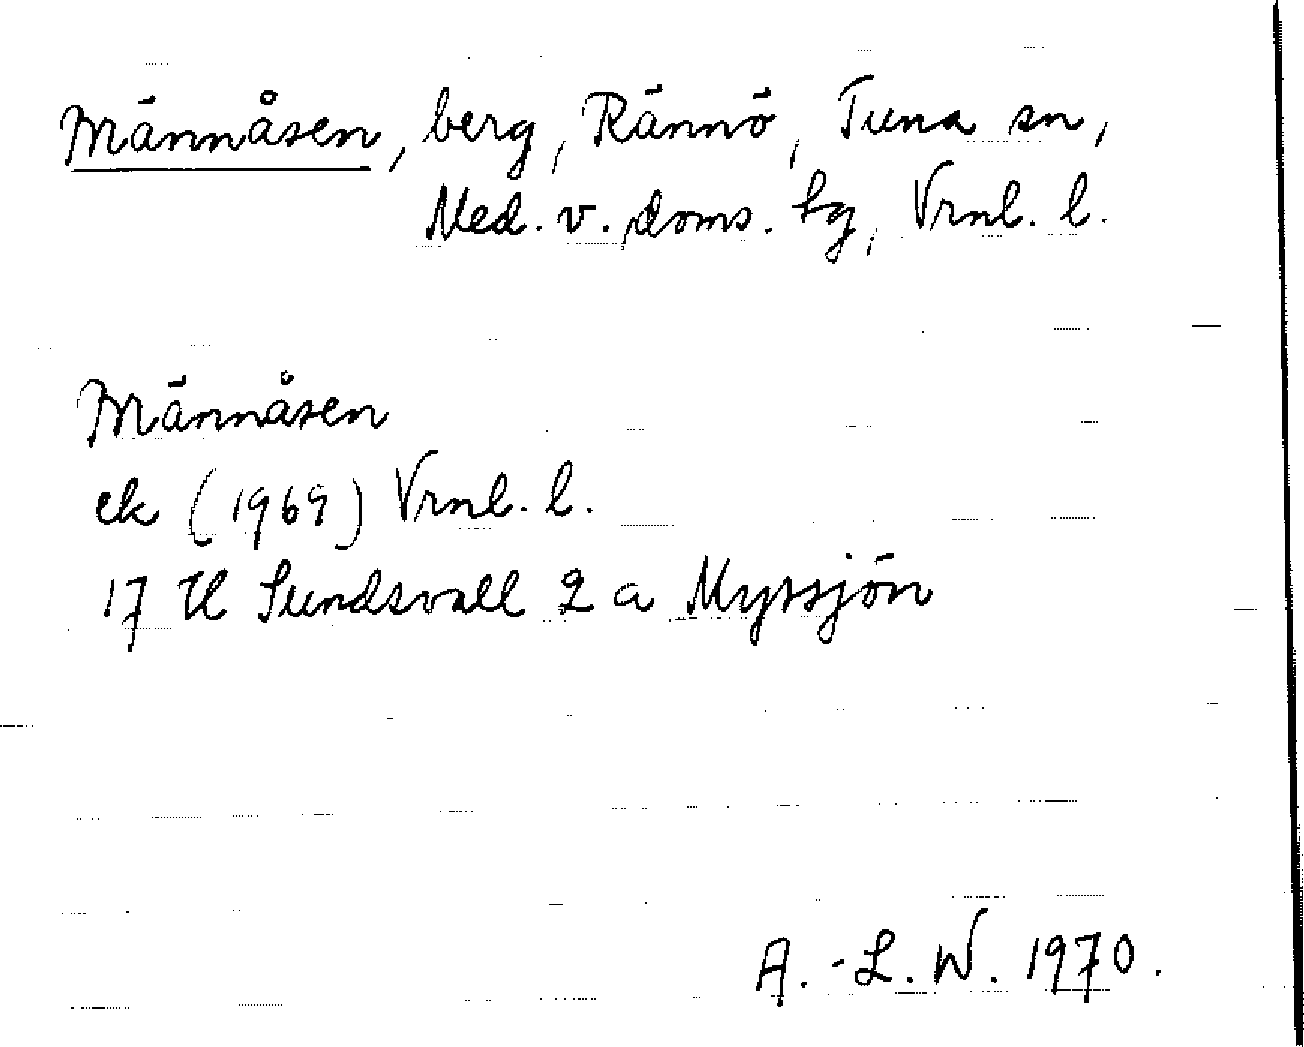 Männåsen, berg, Rännö, Tuna sn,
Med. v. doms. hg, Vrnl. l.
Männåsen
ek (1969) Vrnl. l.
17 H Sundsvall 2 a Myssjön
A.-L. W. 1970.